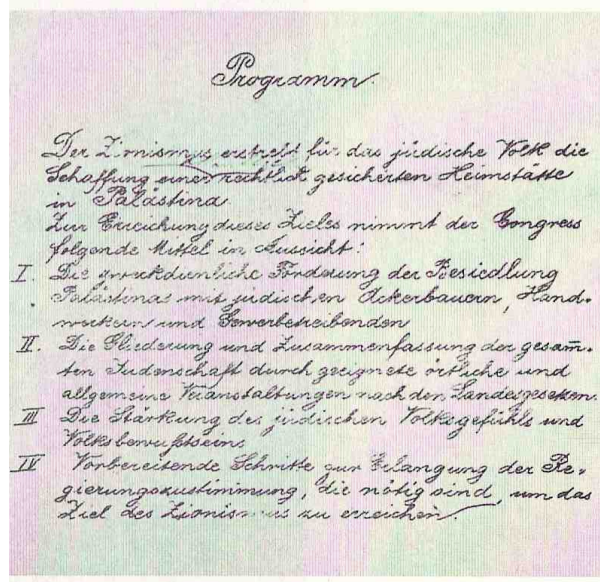 Programm.
Der Zionismus erstrebt für das jüdische Volk die
Schaffung einer rechtlich gesicherten Heimstätte
in Palästina
Zur Erreichung dieses Zieles nimmt der Congress
folgende Mittel in Aussicht:
I. Die zweckdienliche Förderung der Besiedlung
Palästinas mit jüdischen Ackerbauern, Hand-
werkern und Gewerbetreibenden
II. Die Gliederung und Zusammenfassung der gesam̄-
ten Judenschaft durch geeignete örtliche und
allgemeine Veranstaltungen nach den Landesgesetzen.
III Die Stärkung des jüdischen Volksgefühls und
Volksbewußtseins
IV Vorbereitende Schritte zur Erlangung der Re-
gierungszustimmung, die nötig sind, um das
Ziel des Zionismus zu erreichen.